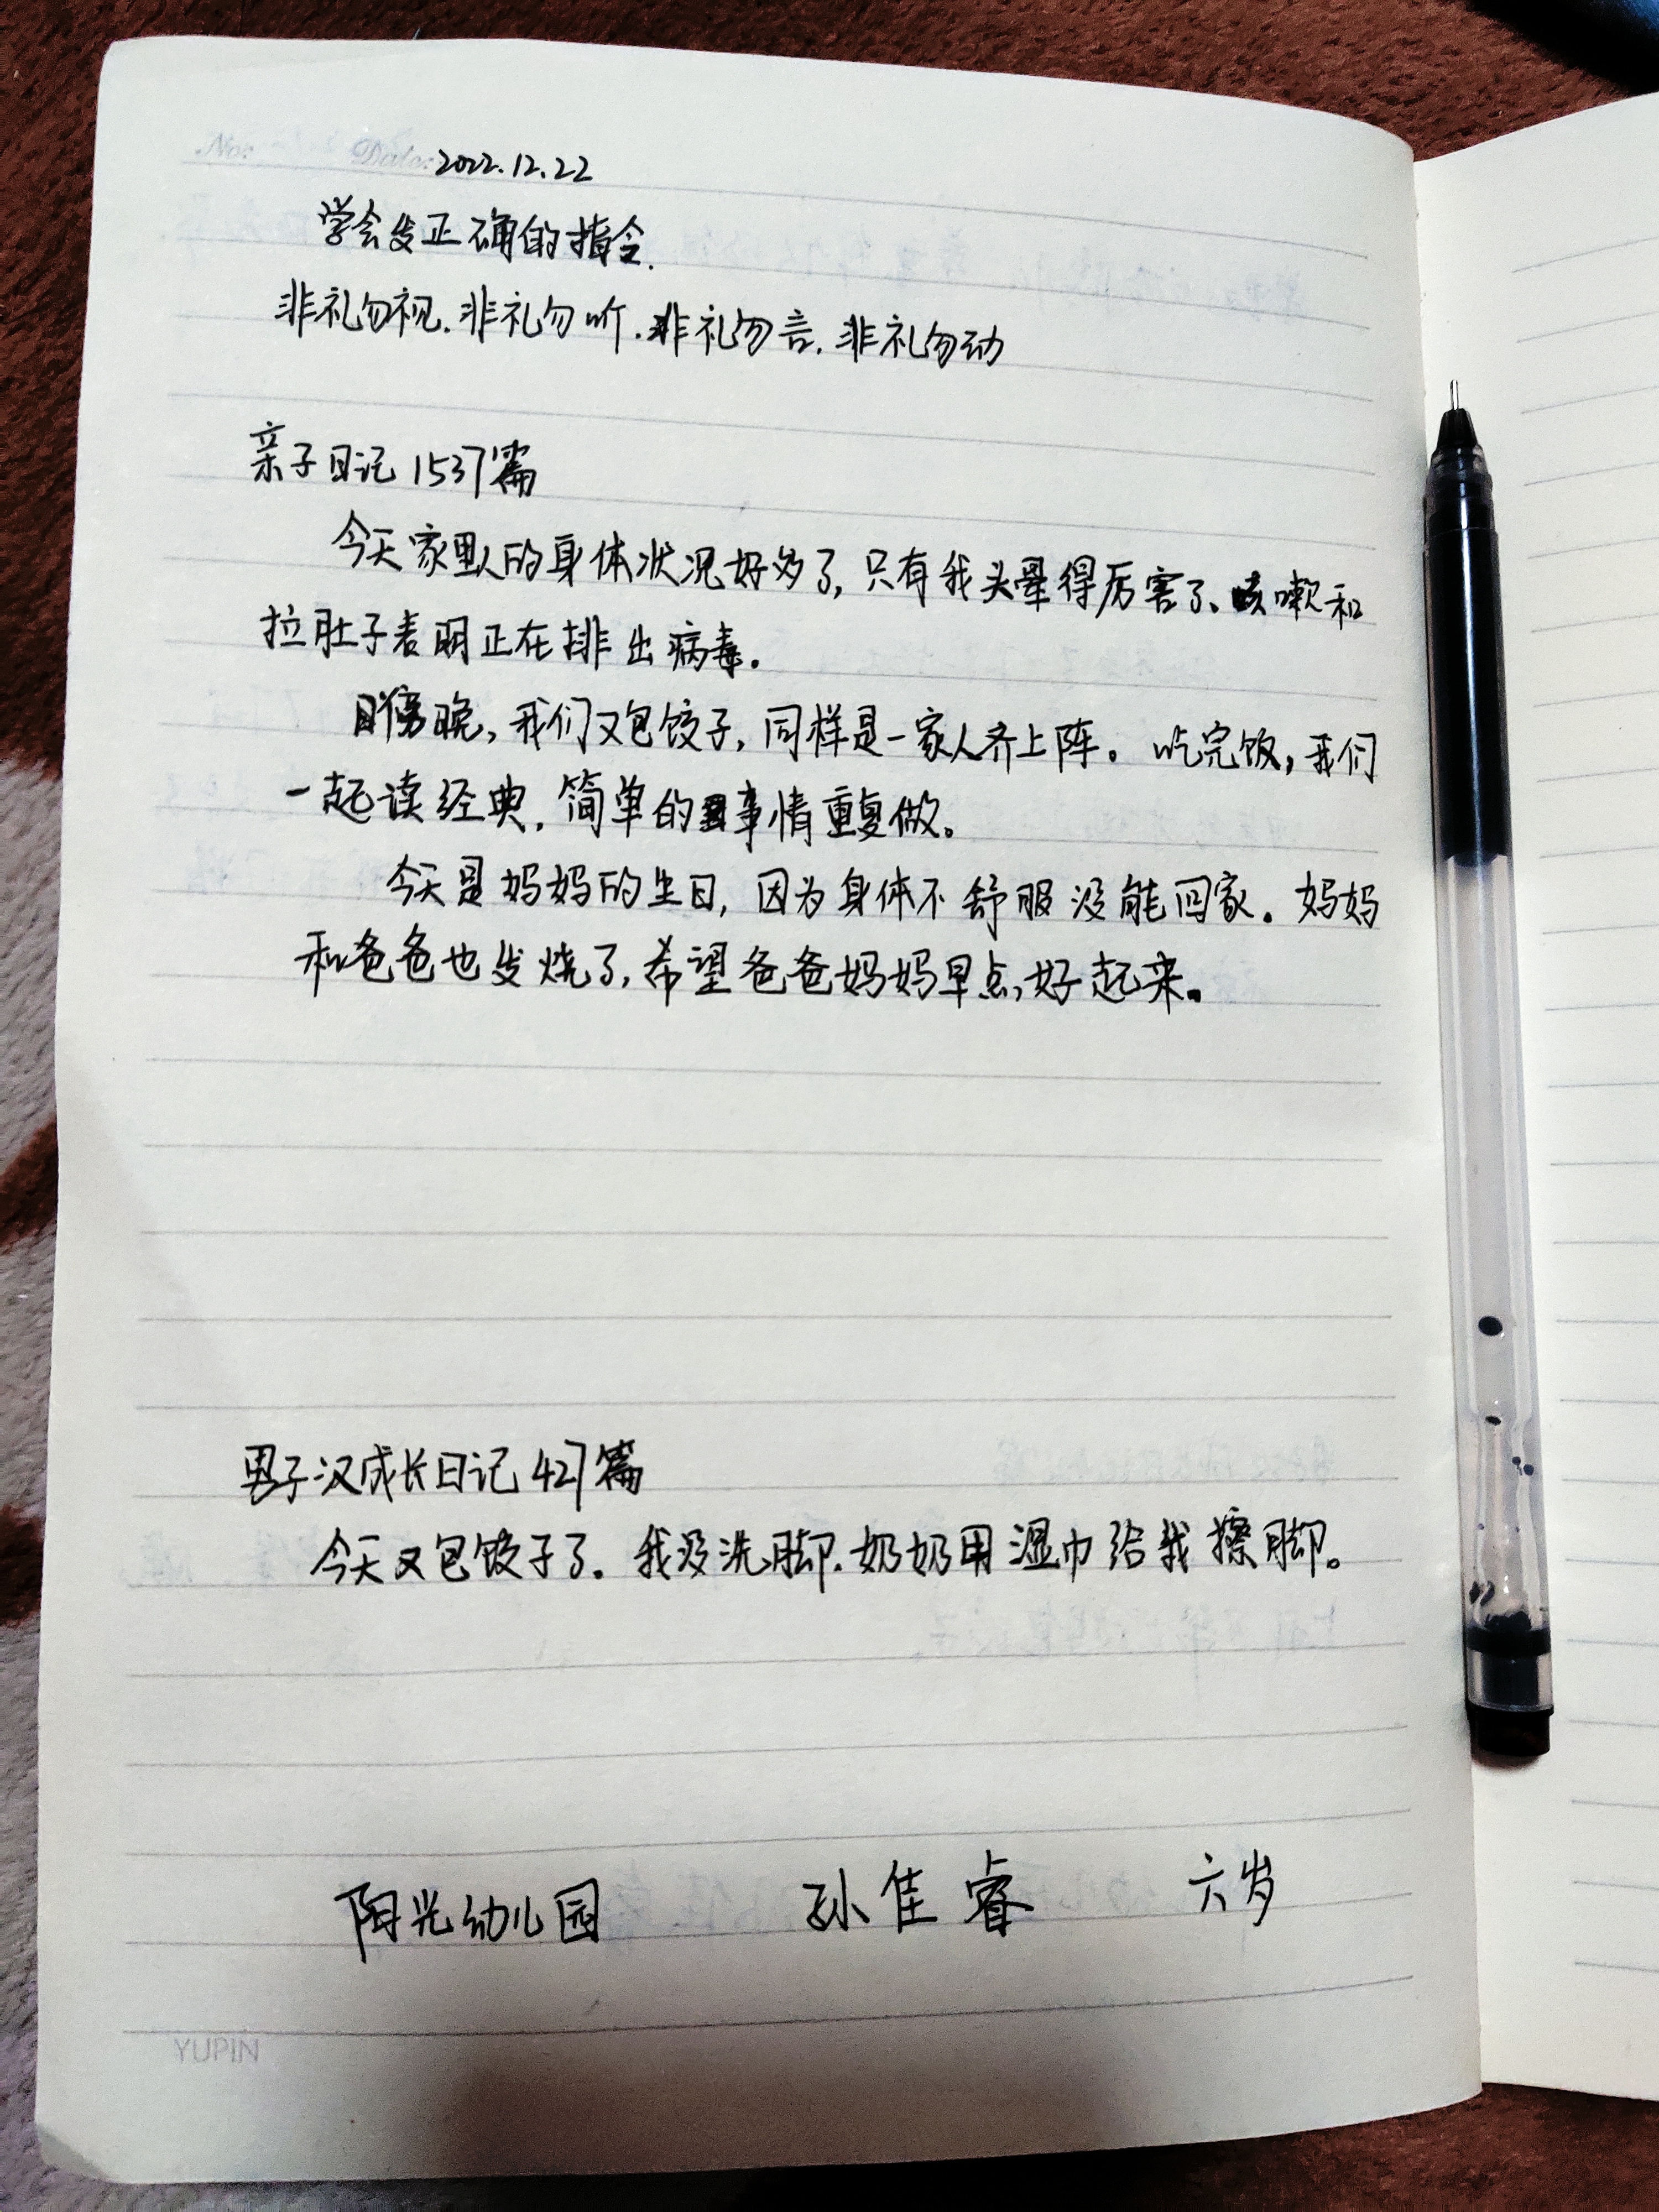 No: Date: 2022.12.22
学会发正确的指令.
非礼勿视.非礼勿听.非礼勿言.非礼勿动
亲子日记1537篇
今天家里人的身体状况好多了,只有我头晕得厉害了、咳嗽和
拉肚子表明正在排出病毒.
傍晚,我们又包饺子,同样是一家人齐上阵。吃完饭,我们
一起读经典.简单的事情重复做。
今天是妈妈的生日,因为身体不舒服没能回家。妈妈
和爸爸也发烧了,希望爸爸妈妈早点好起来。
男子汉成长日记427篇
今天又包饺子了.我没洗脚.奶奶用湿巾给我擦脚。
阳光幼儿园 孙佳睿 六岁
YUPIN